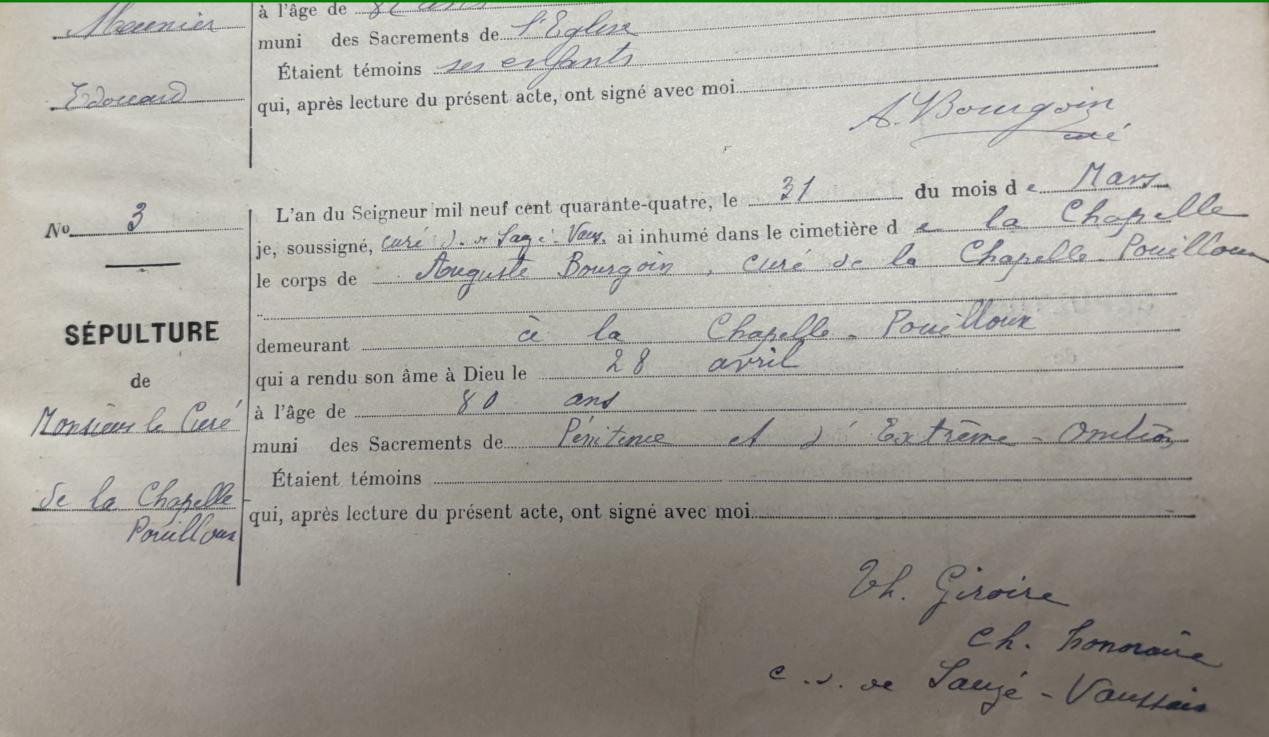 Meunier
Edouard
à l'âge de 82 ans
muni des Sacrements de l'Eglise
Étaient témoins ses enfants
qui, après lecture du présent acte, ont signé avec moi
A. Bourgoin
curé
No 3
SÉPULTURE
de
Monsieur le Curé
de la Chapelle
Pouilloux
L'an du Seigneur mil neuf cent quarante-quatre, le 31 du mois de Mars
je, soussigné, curé d. de Sauzé-Vaus. ai inhumé dans le cimetière de la Chapelle
le corps de Auguste Bourgoin, curé de la Chapelle-Pouilloux
demeurant à la Chapelle-Pouilloux
qui a rendu son âme à Dieu le 28 avril
à l'âge de 80 ans
muni des Sacrements de Pénitence et d'Extrême-Onction
Étaient témoins
qui, après lecture du présent acte, ont signé avec moi
Th. Giroire
ch. honoraire
c. d. de Sauzé-Vaussais